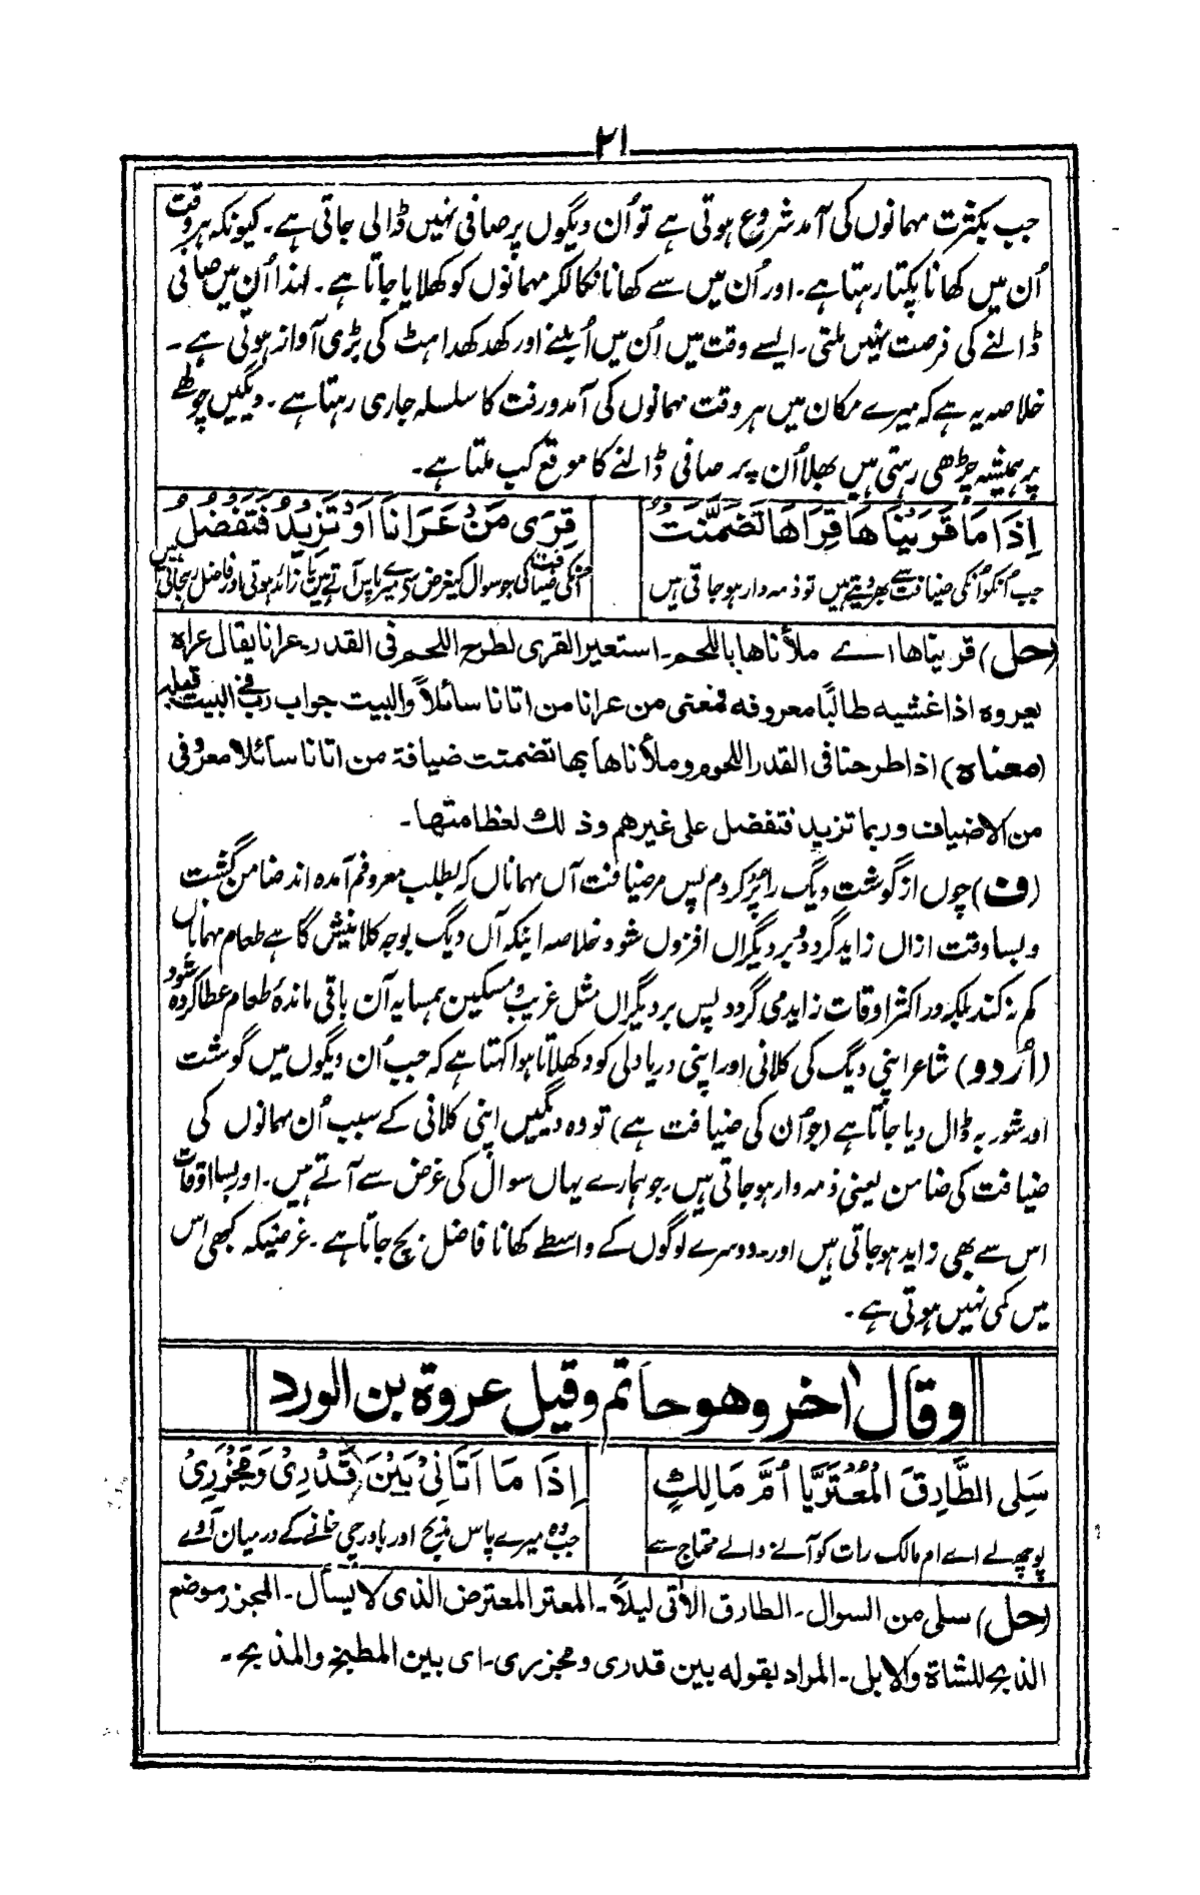 ۲۱
جب بکثرت مہمانوں کی آمد شروع ہوتی ہے تو اُن دیگوں پر صافی نہیں ڈالی جاتی ہے۔ کیونکہ ہر وقت
اُن میں کھانا پکتا رہتا ہے۔ اور اُن میں سے کھانا نکالکر مہمانوں کو کھلایا جاتا ہے۔ لہذا اُن میں صافی
ڈالنے کی فرصت نہیں ملتی۔ ایسے وقت میں اُن میں اُبلنے اور کھدکھداہٹ کی بڑی آواز ہوتی ہے۔
خلاصہ یہ ہے کہ میرے مکان میں ہر وقت مہمانوں کی آمد ورفت کا سلسلہ جاری رہتا ہے۔ دیگیں چولھے
پر ہمیشہ چڑھی رہتی ہیں بھلا اُن پر صافی ڈالنے کا موقع کب ملتا ہے۔
اِذَا مَا قَرَيْنَاهَا قِرَاهَا تَضَمَّنَتْ قِرٰى مَنْ عَرَانَا اَوْ تَزِيْدُ فَتَفْضُلُ
جب ہم انکو اُنکی ضیافت سے بھر دیتے ہیں تو ذمہ دار ہو جاتی ہیں اُنکی ضیافت کی جو سوال کیغرض سے میرے پاس آتے ہیں یا زائد ہوتی اور فاضل رہجاتی ہیں
(حل) قریناھا اے ملأناھا باللحم۔ استعیر القری لطرح اللحم فی القدر۔ عرانا یقال عراہ
یعروہ اذا غشیہ طالبًا معروفہ فمعنی من عرانا من اتانا سائلاً والبیت جواب رب فی البیت قبلہ
(معناہ) اذا طرحنا فی القدر اللحوم وملأناھا بھا تضمنت ضیافۃ من اتانا سائلا معروفی
من الاضیاف وربما تزید فتفضل علی غیرھم وذلك لعظامتھا۔
(ف) چوں از گوشت دیگ را پُر کردم پس مر ضیافت آں مہماناں کہ بطلب معروفم آمدہ اند ضامن گشت
و بسا وقت ازاں زاید گردد و بر دیگراں افزوں شود خلاصہ اینکہ آں دیگ بوجہ کلانیش گاہے طعام مہماناں
کم نہ کند بلکہ در اکثر اوقات زاید می گردد پس بر دیگراں مثل غریب و مسکین ہمسایہ آن باقی ماندۂ طعام عطا کردہ شود
(اُردو) شاعر اپنی دیگ کی کلانی اور اپنی دریا دلی کو دکھلاتا ہوا کہتا ہے کہ جب اُن دیگوں میں گوشت
اور شوربہ ڈال دیا جاتا ہے (جو اُن کی ضیافت ہے) تو وہ دیگیں اپنی کلانی کے سبب اُن مہمانوں کی
ضیافت کی ضامن یعنی ذمہ دار ہو جاتی ہیں جو ہمارے یہاں سوال کی غرض سے آتے ہیں۔ اور بسا اوقات
اس سے بھی زاید ہو جاتی ہیں اور دوسرے لوگوں کے واسطے کھانا فاضل بچ جاتا ہے۔ غرضیکہ کبھی اس
میں کمی نہیں ہوتی ہے۔
وقال اٰخر وھو حاتم وقیل عروۃ بن الورد
سَلِی الطَّارِقَ الْمُعْتَرَّ یَا اُمَّ مَالِكٍ اِذَا مَا اَتَانِیْ بَیْنَ قِدْرِیْ وَمَجْزِرِیْ
پوچھ لے اے ام مالک رات کو آنے والے محتاج سے جب وہ میرے پاس مذبح اور باورچی خانے کے درمیان آوے
(حل) سلی من السوال۔ الطارق الآتی لیلاً۔ المعتر المعترض الذی لا یسأل۔ المجزر موضع
الذبح للشاۃ والابل۔ المراد بقولہ بین قدری ومجزری۔ ای بین المطبخ والمذبح۔